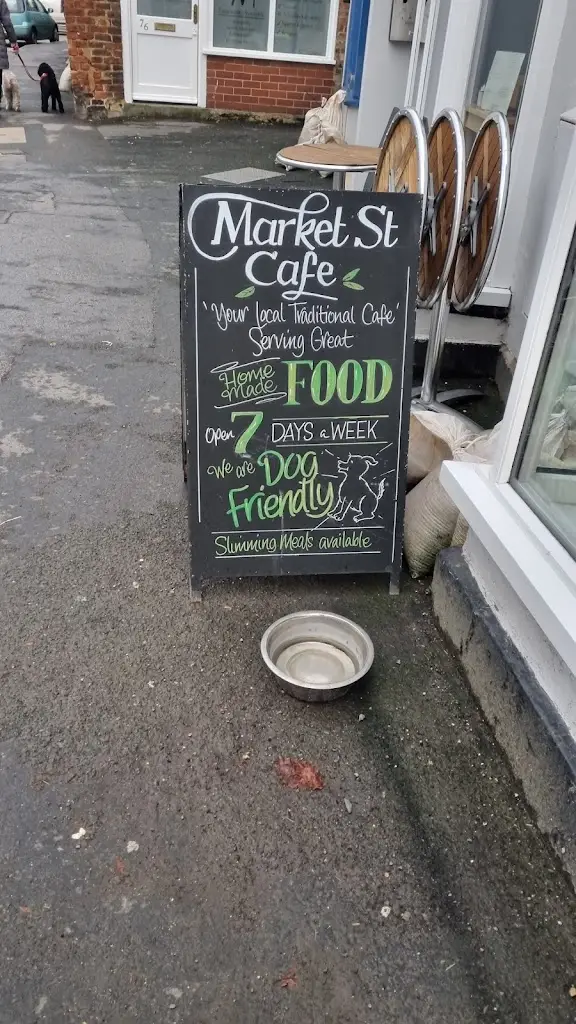 76
Market St
Cafe
'Your Local Traditional Cafe'
Serving Great
Home made FOOD
Open 7 DAYS a WEEK
We are Dog
Friendly
Slimming Meals available